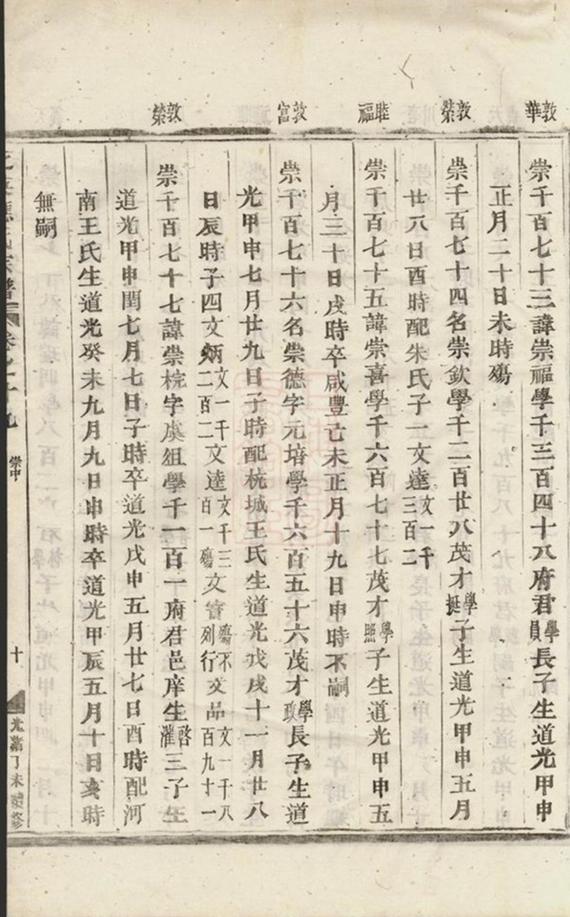 敦華
敦榮
睦福
敦富
敦榮
崇千百七十三諱崇福學千三百四十八府君學員長子生道光甲申
正月二十日未時殤
崇千百七十四名崇欽學千二百廿八茂才學挺子生道光甲申五月
廿八日酉時配朱氏子一文達文一千三百二
崇千百七十五諱崇喜學千六百七十七茂才學熙子生道光甲申五
月三十日戌時卒咸豐己未正月十九日申時不嗣
崇千百七十六名崇德字元培學千六百五十六茂才學攻長子生道
光甲申七月廿九日子時配杭城王氏生道光戊戌十一月廿八
日辰時子四文炳文一千二百二文達文千三百一殤文會殤不列行文品文一千八百九十一
崇千百七十七諱崇梡字虞組學千一百一府君邑庠生啓灌三子生
道光甲申閏七月七日子時卒道光戊申五月廿七日酉時配河
南王氏生道光癸未九月九日申時卒道光甲辰五月十日亥時
無嗣
崇中
十
光緒丁未續修